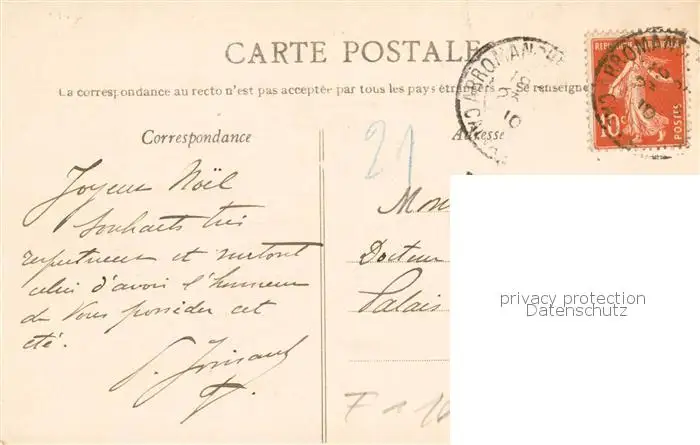 CARTE POSTALE
La correspondance au recto n'est pas acceptée par tous les pays étrangers Se renseigne
Correspondance
Adresse
21
REPUBLIQUE
10c
POSTES
Joyeux Noël
Souhaits très
respectueux et surtout
celui d'avoir l'honneur
de Vous posséder cet
été.
Mon
Docteur
Palais
privacy protection
Datenschutz